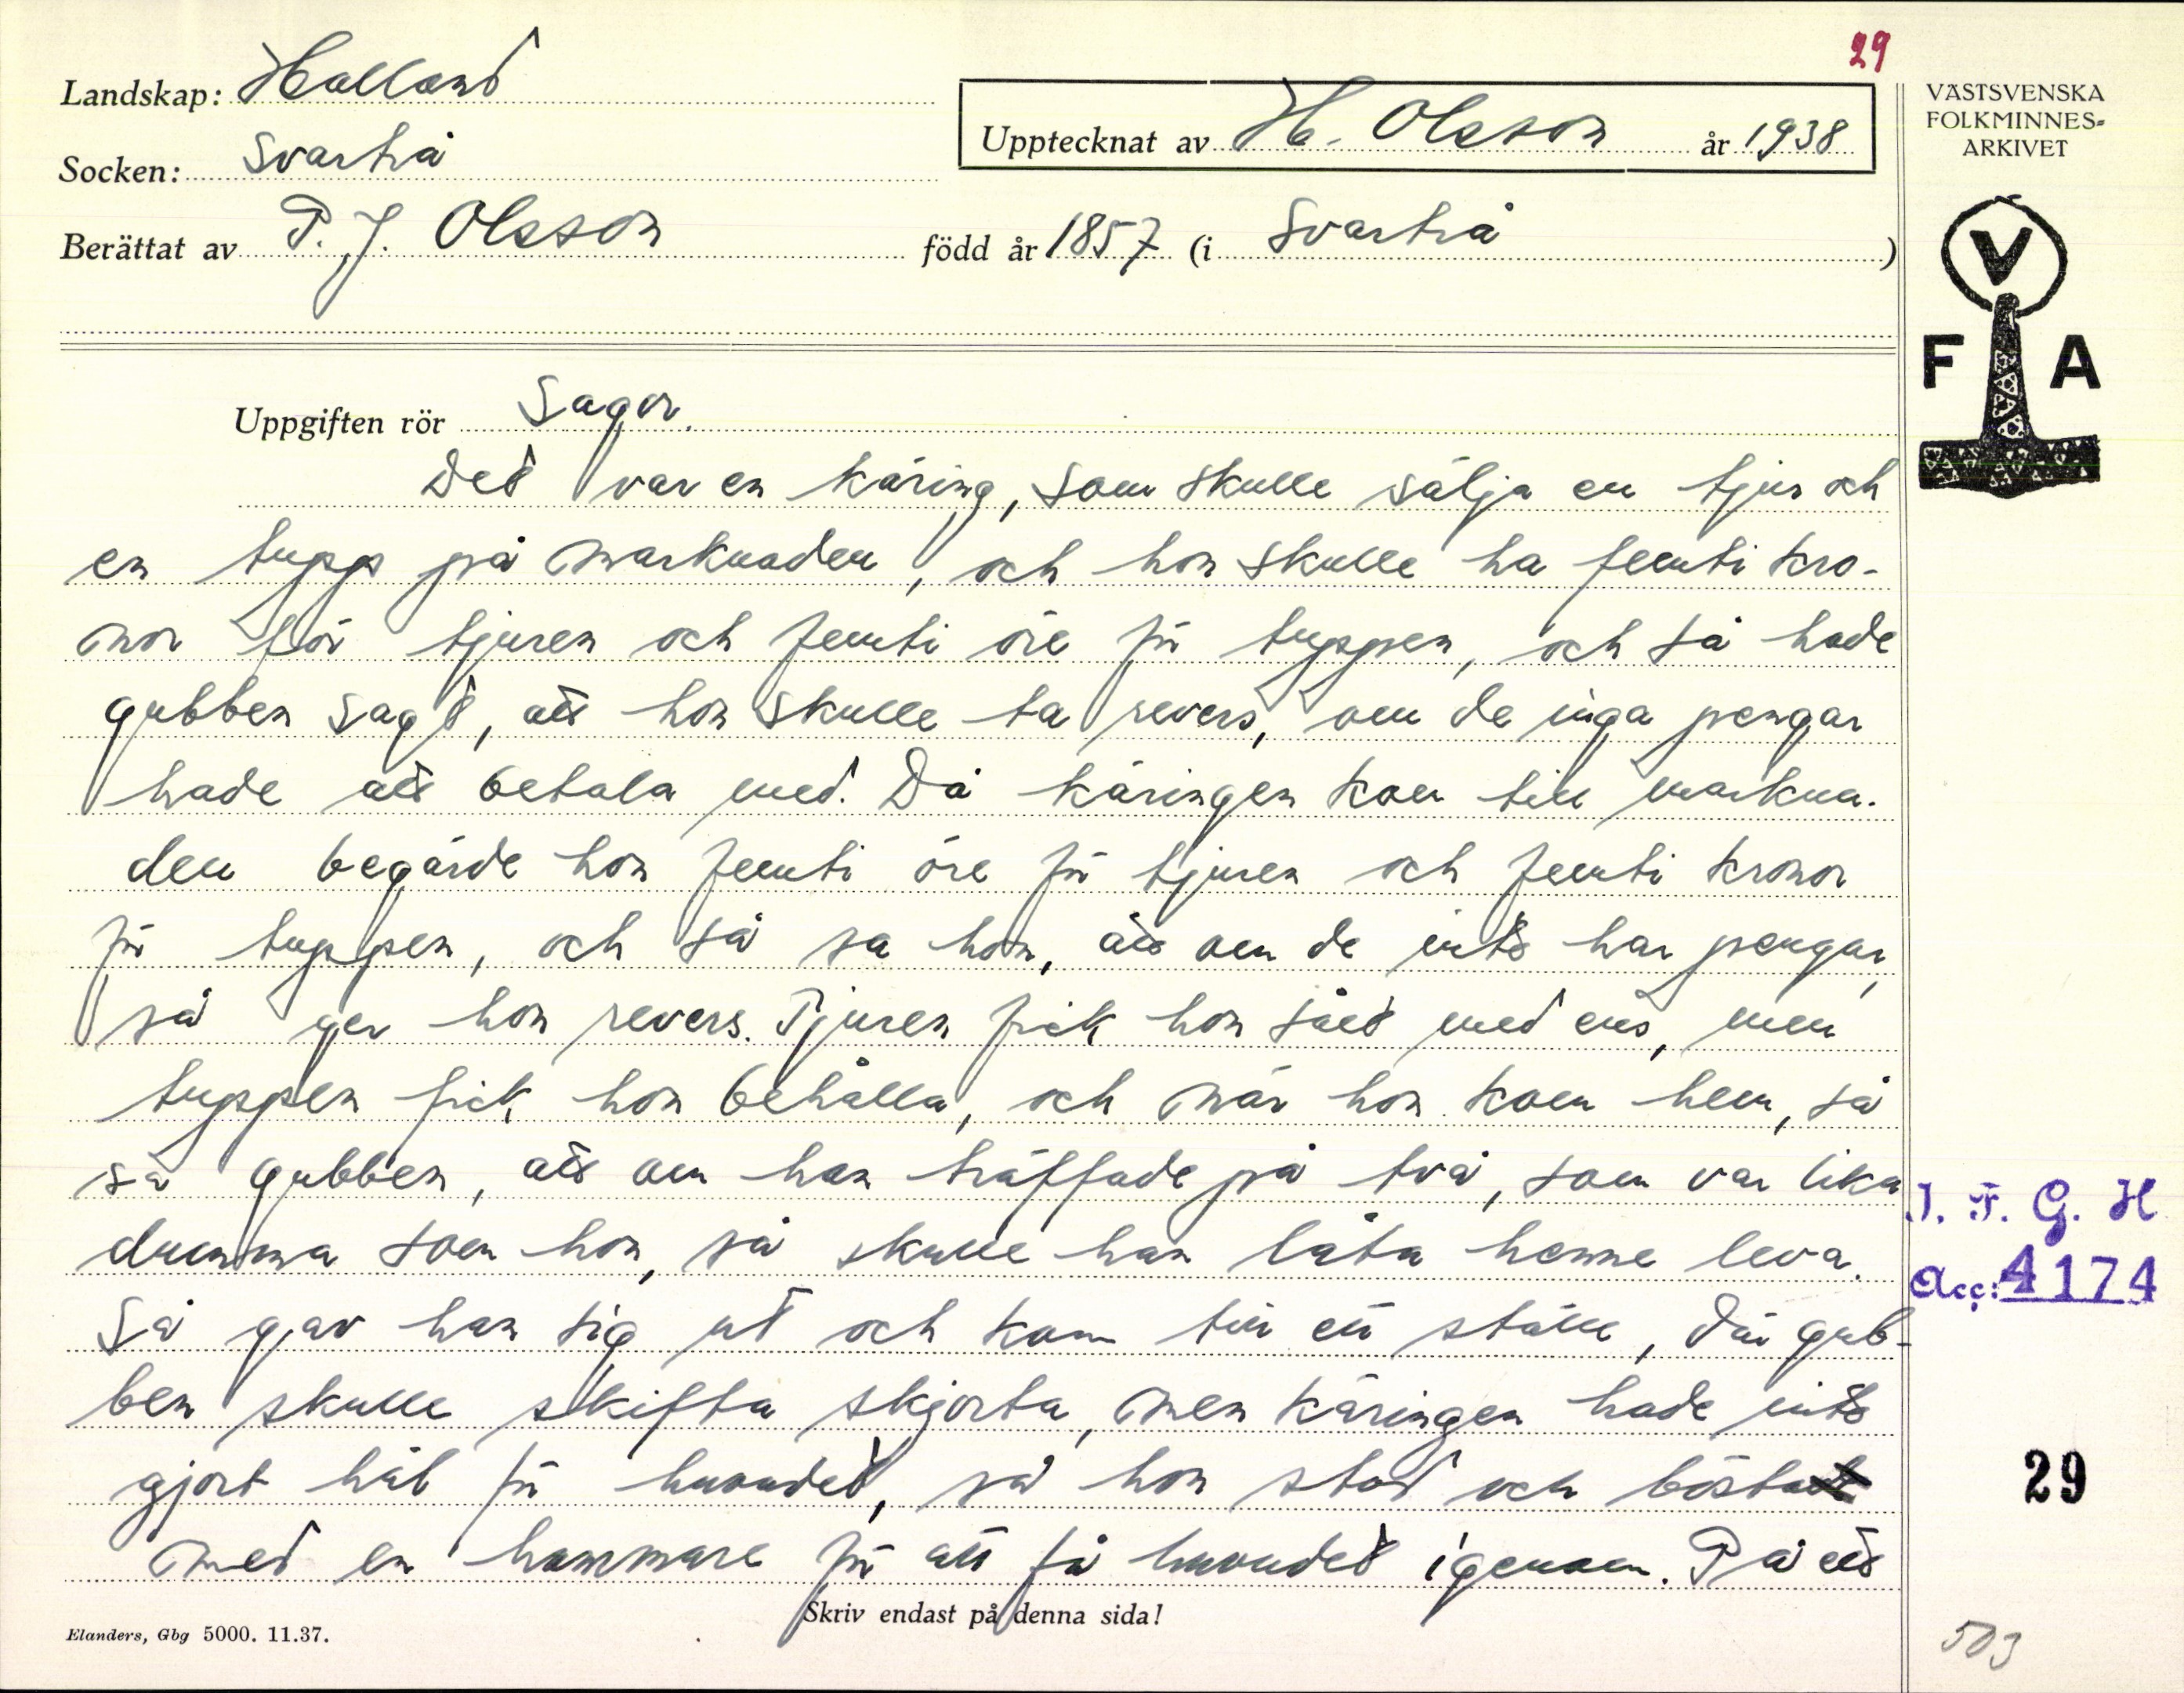 29
Landskap: Halland
Socken: Svartrå
Upptecknat av H. Olsson år 1938
Berättat av P. J. Olsson född år 1857 (i Svartrå)
VÄSTSVENSKA
FOLKMINNES=
ARKIVET
V
F A
Uppgiften rör Sagor.
Det var en käring, som skulle sälja en tjur och
en tupp på marknaden, och hon skulle ha femti kro-
nor för tjuren och femti öre för tuppen, och så hade
gubben sagt, att hon skulle ta revers, om de inga pengar
hade att betala med. Då käringen kom till markna-
den begärde hon femti öre för tjuren och femti kronor
för tuppen, och så sa hon, att om de inte har pengar,
så ger hon revers. Tjuren fick hon såld med ens, men
tuppen fick hon behålla, och när hon kom hem, så
sa gubben, att om han träffade på två, som var lika
dumma som hon, så skulle han låta henne leva.
Så gav han sig ut och kom till ett ställe, där gub-
ben skulle skifta skjorta, men käringen hade inte
gjort hål för huvudet, så hon stod och bösta
med en hammare för att få huvudet igenom. På ett
I. F. G. H
Acc: 4174
29
Skriv endast på denna sida!
Elanders, Gbg 5000. 11.37.
503